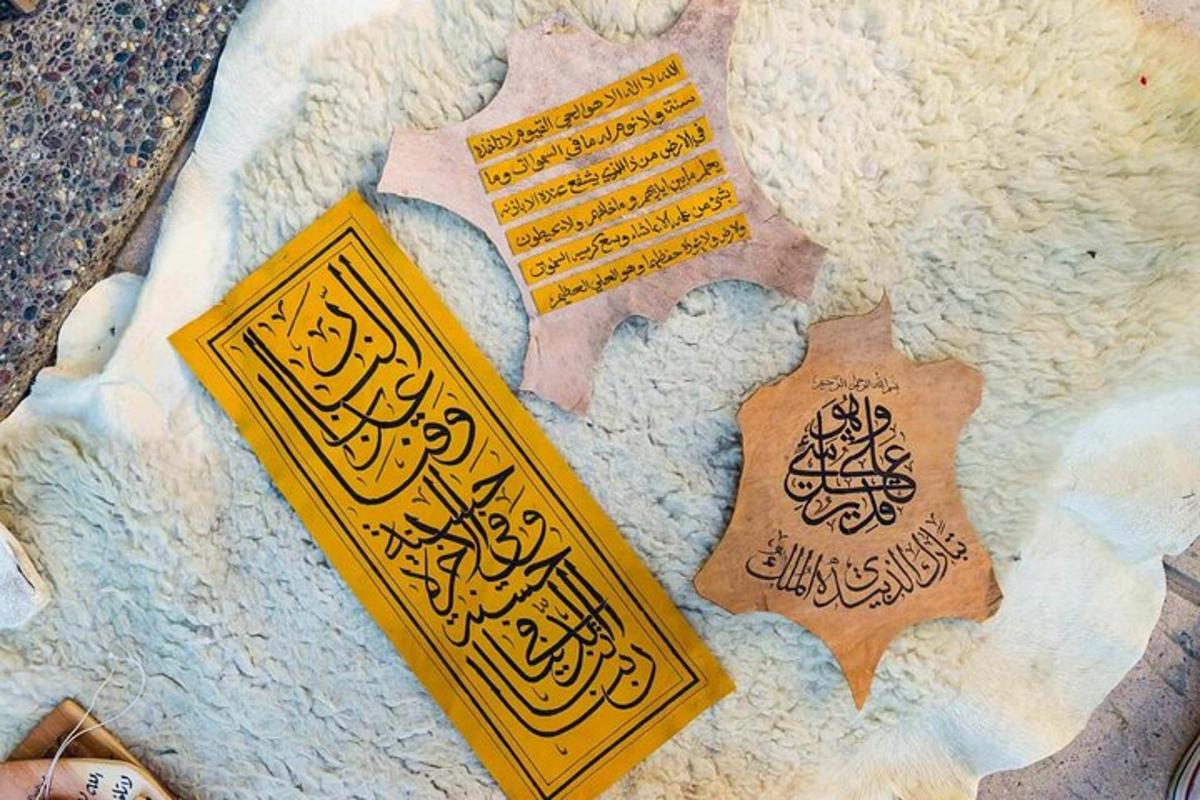 الله لا اله الا هو الحي القيوم لا تاخذه
سنة ولا نوم له ما في السموات وما
في الارض من ذا الذي يشفع عنده الا باذنه
يعلم ما بين ايديهم وما خلفهم ولا يحيطون
بشيء من علمه الا بما شاء وسع كرسيه السموات
ولارض ولا يؤده حفظهما وهو العلي العظيم
ربنا اتنا في الدنيا حسنة
وفي الاخرة حسنة
وقنا عذاب النار
بسم الله الرحمن الرحيم
وهو على كل شيء قدير
تبارك الذي بيده الملك